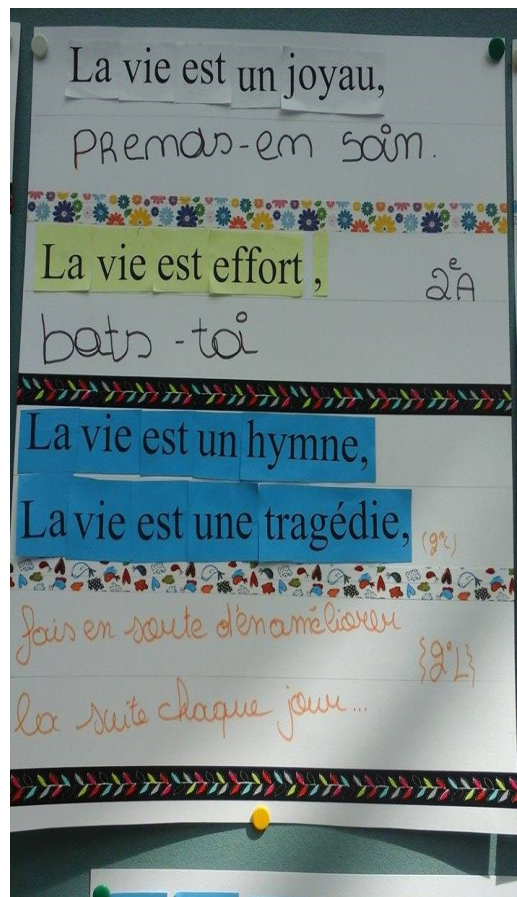 La vie est un joyau,
prends-en soin.
La vie est effort,
2eA
bats-toi
La vie est un hymne,
La vie est une tragédie,
fais en sorte d'en améliorer
{2eL}
la suite chaque jour...